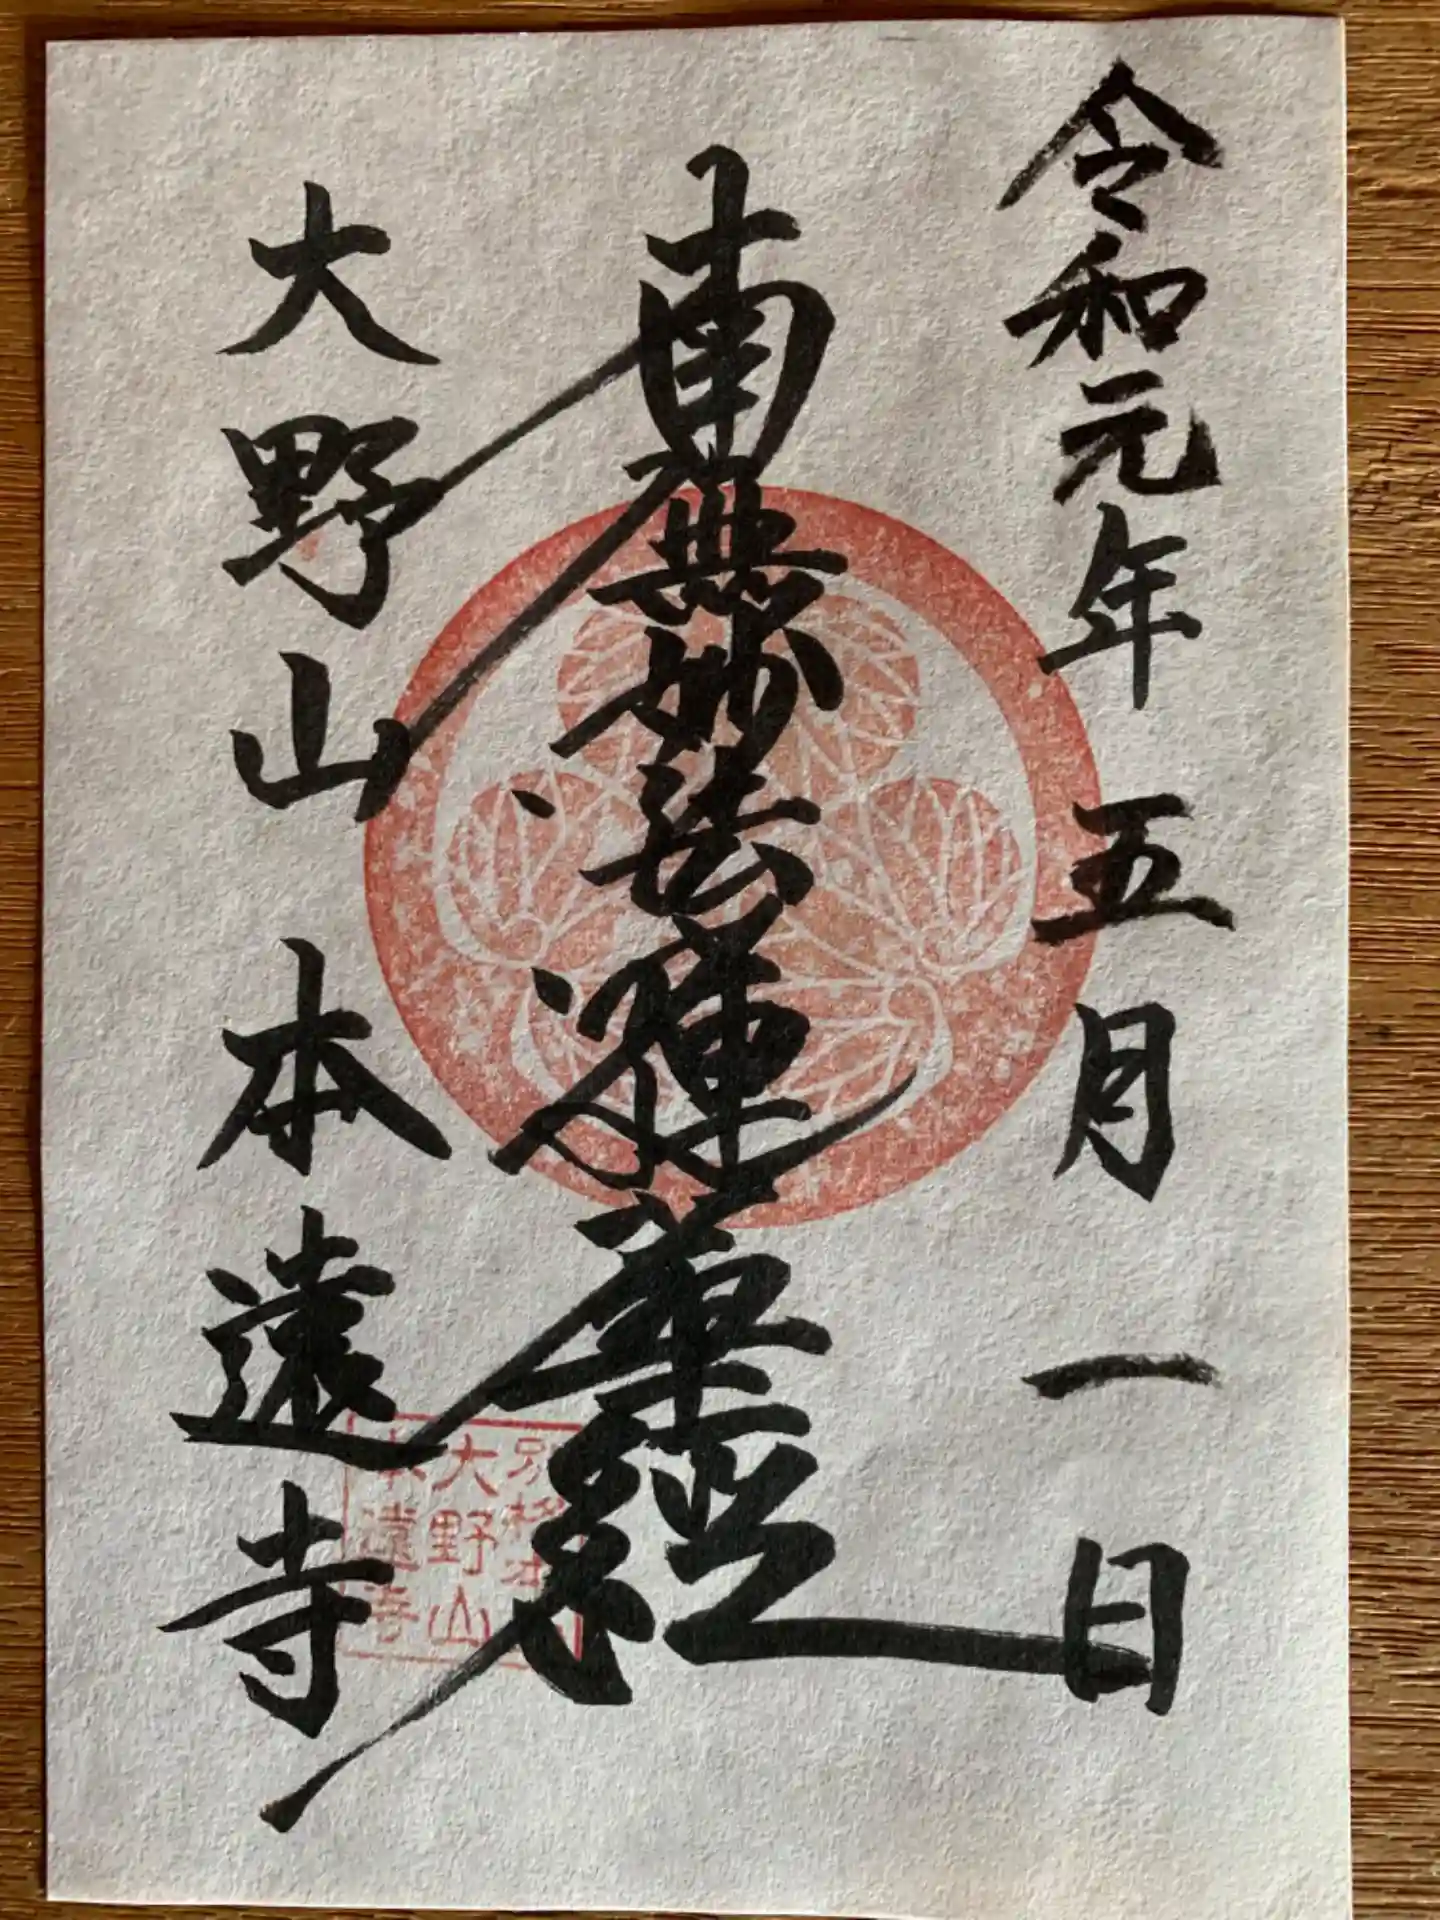 令和元年五月一日
南無妙法蓮華経
大野山本遠寺
別格本山
大野山
本遠寺